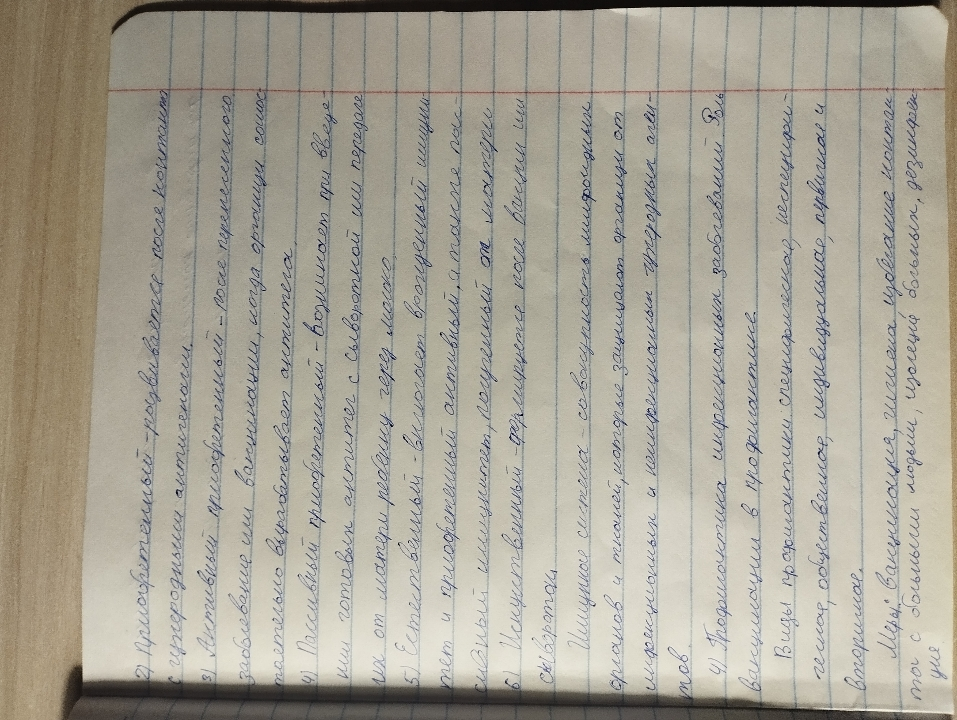 2) Приобретенный - развивается после контакта
с чужеродными антигенами.
3) Активный приобретенный - после перенесенного
заболевание или вакцинации, когда организм самос-
тоятельно вырабатывает антитела.
4) Пассивный приобретенный - возникает при введе-
нии готовых антител с сывороткой или передаче
их от матери ребенку через молоко.
5) Естественный - включает врожденный иммуни-
тет и приобретенный активный, а также пас-
сивный иммунитет, полученный от матери
6) Искуственный - формируется после вакцин или
сыворотки
Имунное система - совокупность лимфоидных
органов и тканей, которые защищают организм от
инфекционных и неинфекционных чужеродных аген-
тов.
4) Профилактика инфекционных заболеваний Роль
вакцинации в профилактике.
Виды профилактики специфическая, неспецифи-
ческая, общественная, индивидуальная, первичная и
вторичная.
Меры: вакцинация, гигиена избегание контак-
тов с больными людьми, изоляция больных, дезинфек-
ция